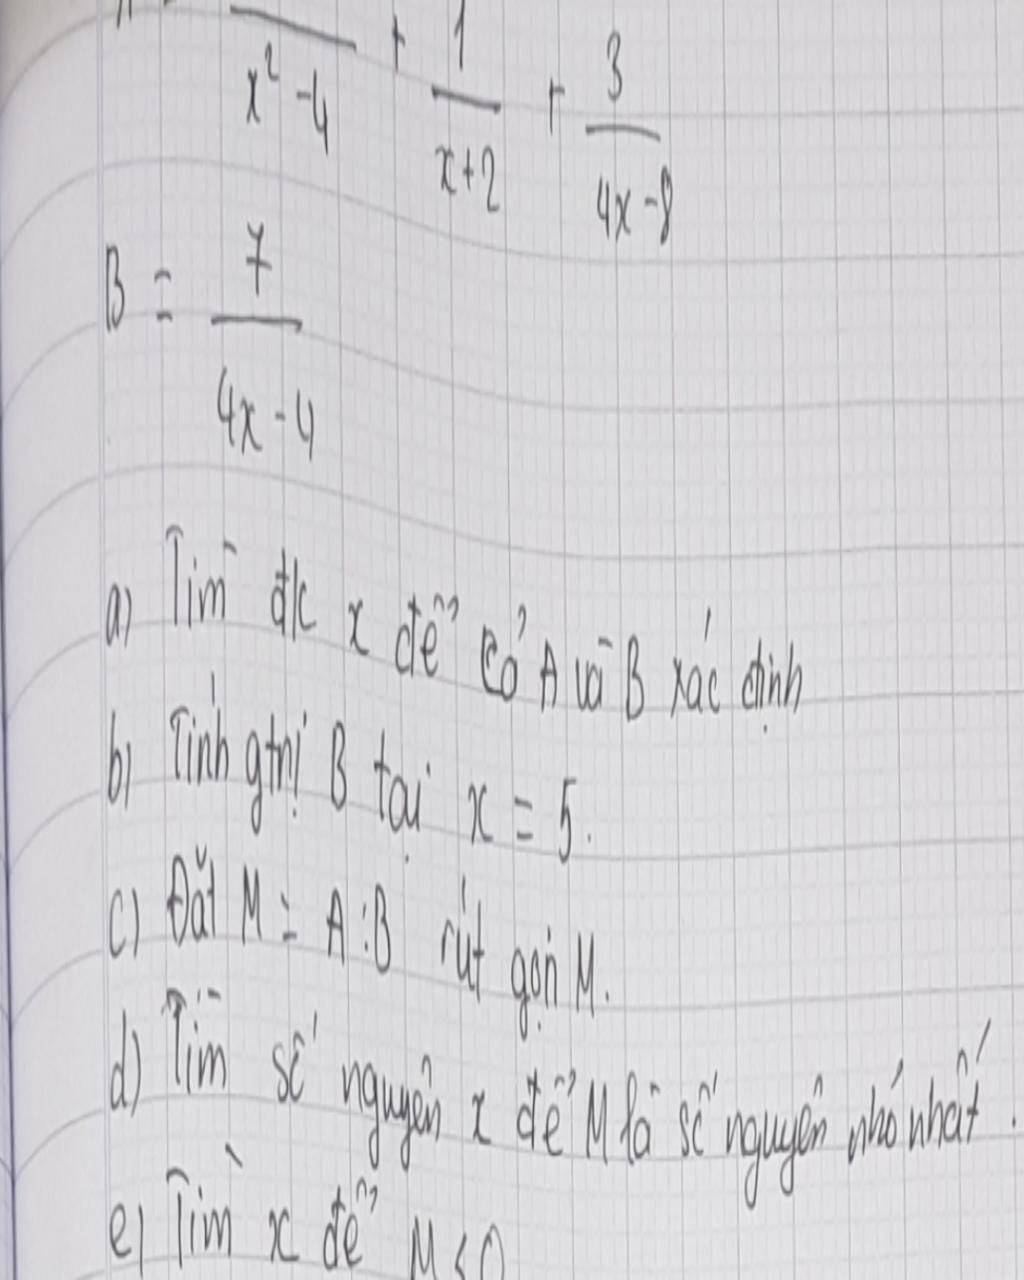 x² - 4 + 1/(x+2) + 3/(4x-8)
B = 7/(4x-4)
a) Tìm đk x để cả A và B xác định
b) Tính gtrị B tại x = 5.
c) Đặt M = A:B rút gọn M.
d) Tìm số nguyên x để M là số nguyên nhỏ nhất.
e) Tìm x để M < 0